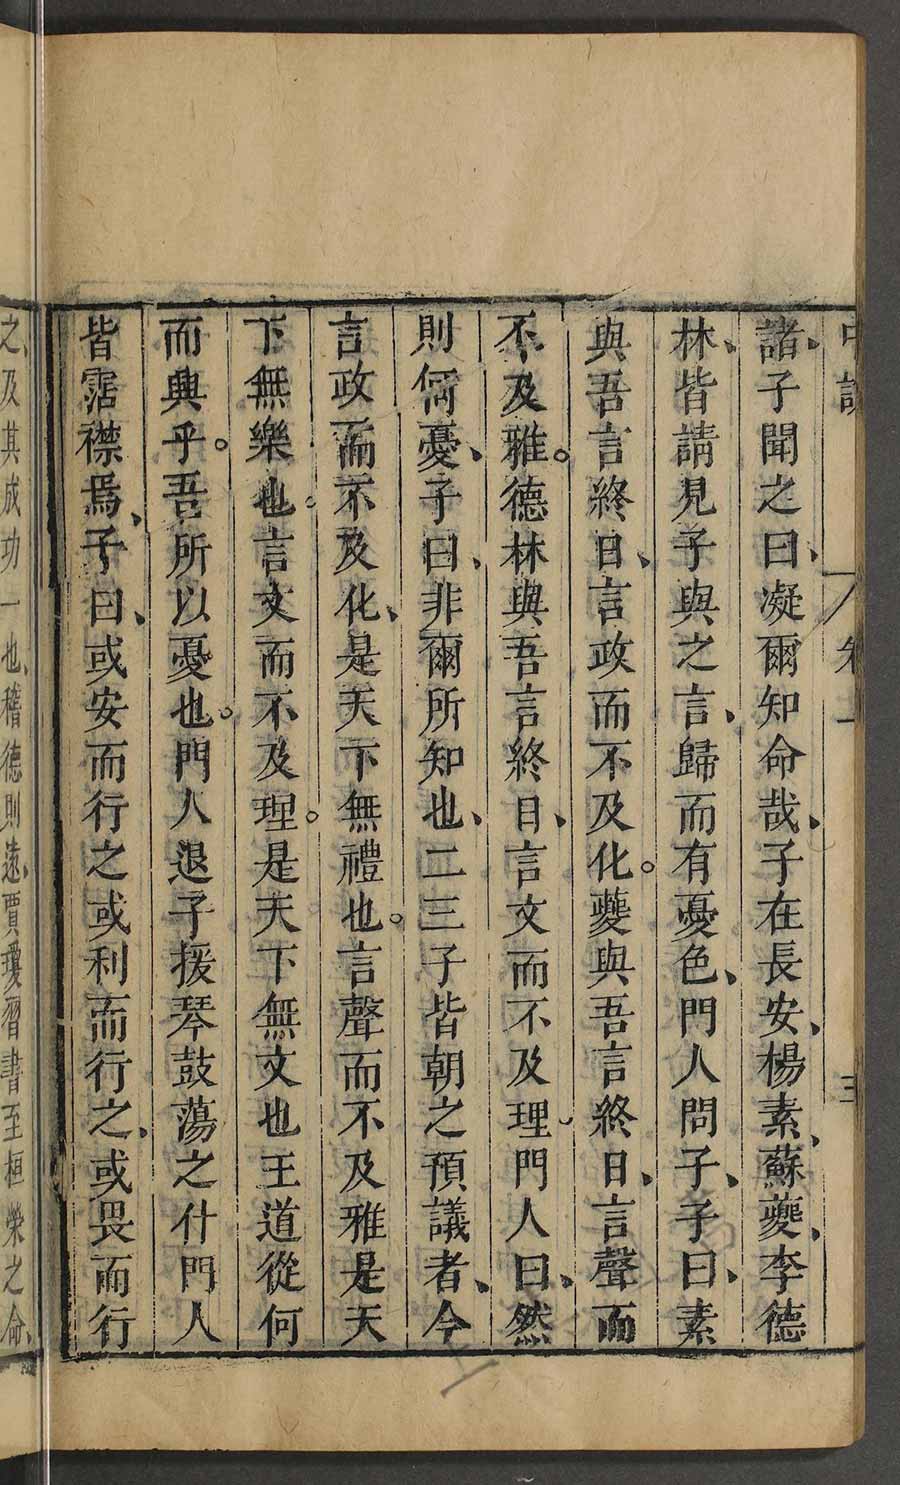 中說
卷一
諸、子聞之曰、凝爾知命哉、子在長安、楊素、蘇夔、李德
林、皆請見子與之言、歸而有憂色、門人問子、子曰、素
與吾言終日、言政而不及化。夔與吾言終日、言聲而
不及雅。德林與吾言終日、言文而不及理。門人曰、然
則何憂、子曰、非爾所知也、二三子皆朝之預議者、今
言政而不及化、是天下無禮也。言聲而不及雅是天
下無樂也。言文而不及理。是天下無文也王道從何
而興乎。吾所以憂也。門人退子援琴鼓蕩之什門人
皆霑襟焉、子曰、或安而行之或利而行之、或畏而行
之、及其成功一也、稽德則遠、賈瓊習書至桓榮之命、